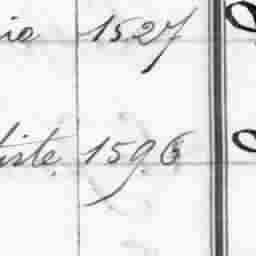 io 1527
tiste 1596